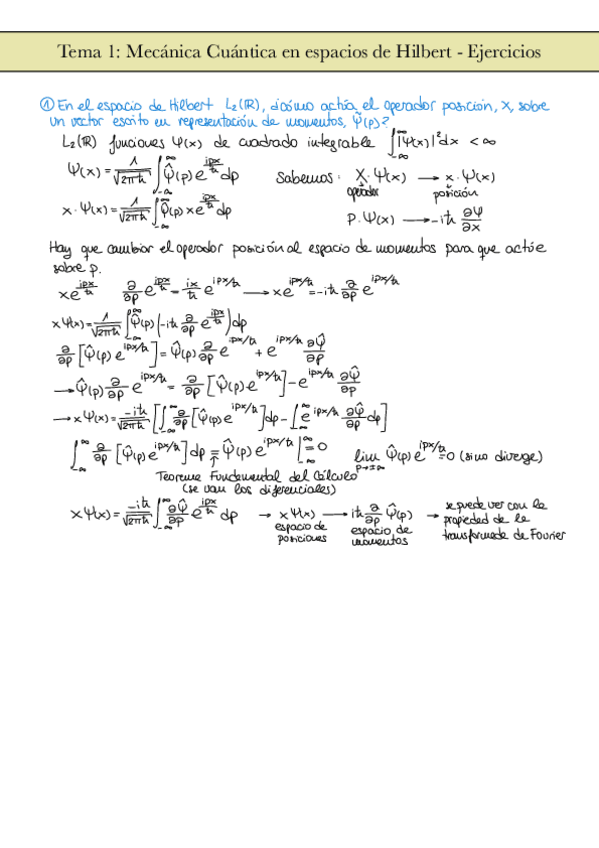 Tema 1: Mecánica Cuántica en espacios de Hilbert - Ejercicios
① En el espacio de Hilbert L₂(ℝ), ¿cómo actúa el operador posición, X, sobre
un vector escrito en representación de momentos, Ψ̂(p)?
L₂(ℝ) funciones Ψ(x) de cuadrado integrable ∫_{-∞}^{∞} |Ψ(x)|² dx < ∞
Ψ(x) = 1/√(2πħ) ∫_{-∞}^{∞} Ψ̂(p) e^{ipx/ħ} dp Sabemos: X·Ψ(x) → x·Ψ(x)
operador posición
x·Ψ(x) = 1/√(2πħ) ∫_{-∞}^{∞} Ψ̂(p) x e^{ipx/ħ} dp P·Ψ(x) → -iħ ∂Ψ/∂x
Hay que cambiar el operador posición al espacio de momentos para que actúe
sobre p.
x e^{ipx/ħ} ∂/∂p e^{ipx/ħ} = ix/ħ e^{ipx/ħ} → x e^{ipx/ħ} = -iħ ∂/∂p e^{ipx/ħ}
xΨ(x) = 1/√(2πħ) ∫_{-∞}^{∞} Ψ̂(p) (-iħ ∂/∂p e^{ipx/ħ}) dp
∂/∂p [Ψ̂(p) e^{ipx/ħ}] = Ψ̂(p) ∂/∂p e^{ipx/ħ} + e^{ipx/ħ} ∂Ψ̂/∂p
→ Ψ̂(p) ∂/∂p e^{ipx/ħ} = ∂/∂p [Ψ̂(p) e^{ipx/ħ}] - e^{ipx/ħ} ∂Ψ̂/∂p
→ xΨ(x) = -iħ/√(2πħ) [∫ ∂/∂p [Ψ̂(p) e^{ipx/ħ}] dp - ∫ e^{ipx/ħ} ∂Ψ̂/∂p dp]
∫_{-∞}^{∞} ∂/∂p [Ψ̂(p) e^{ipx/ħ}] dp = Ψ̂(p) e^{ipx/ħ} |_{-∞}^{∞} = 0 lim_{p→±∞} Ψ̂(p) e^{ipx/ħ} = 0 (si no diverge)
Teorema Fundamental del Cálculo
(se van los diferenciales)
xΨ(x) = -iħ/√(2πħ) ∫_{-∞}^{∞} ∂Ψ̂/∂p e^{ipx/ħ} dp → xΨ(x) → iħ ∂/∂p Ψ̂(p) → se puede ver con la
espacio de posiciones espacio de momentos propiedad de la
transformada de Fourier